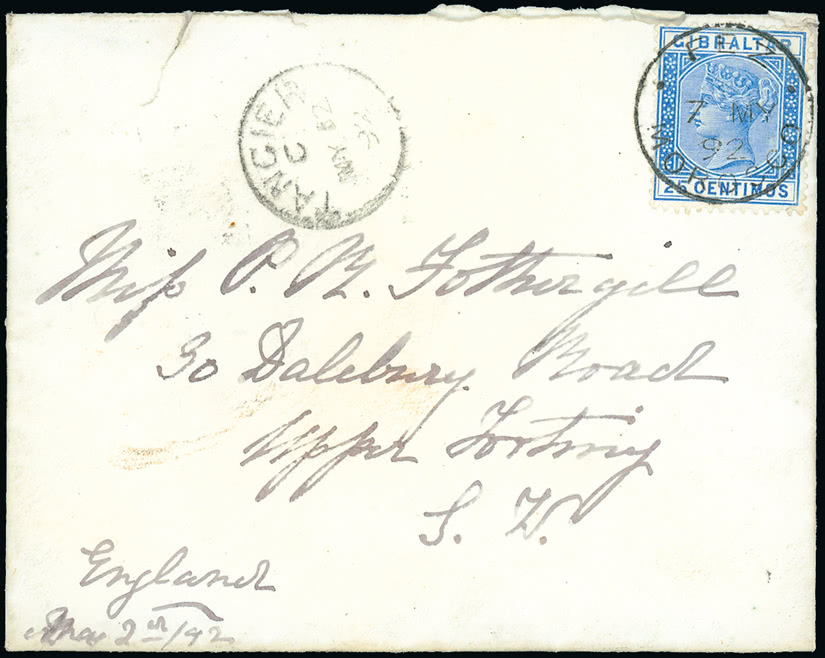 GIBRALTAR
25 CENTIMOS
FEZ
7 MY
92
MOROCCO
TANGIER
C
MY
92
Miss P. M. Fothergill
30 Dalebury Road
Upper Tooting
S. W.
England
2nd/92